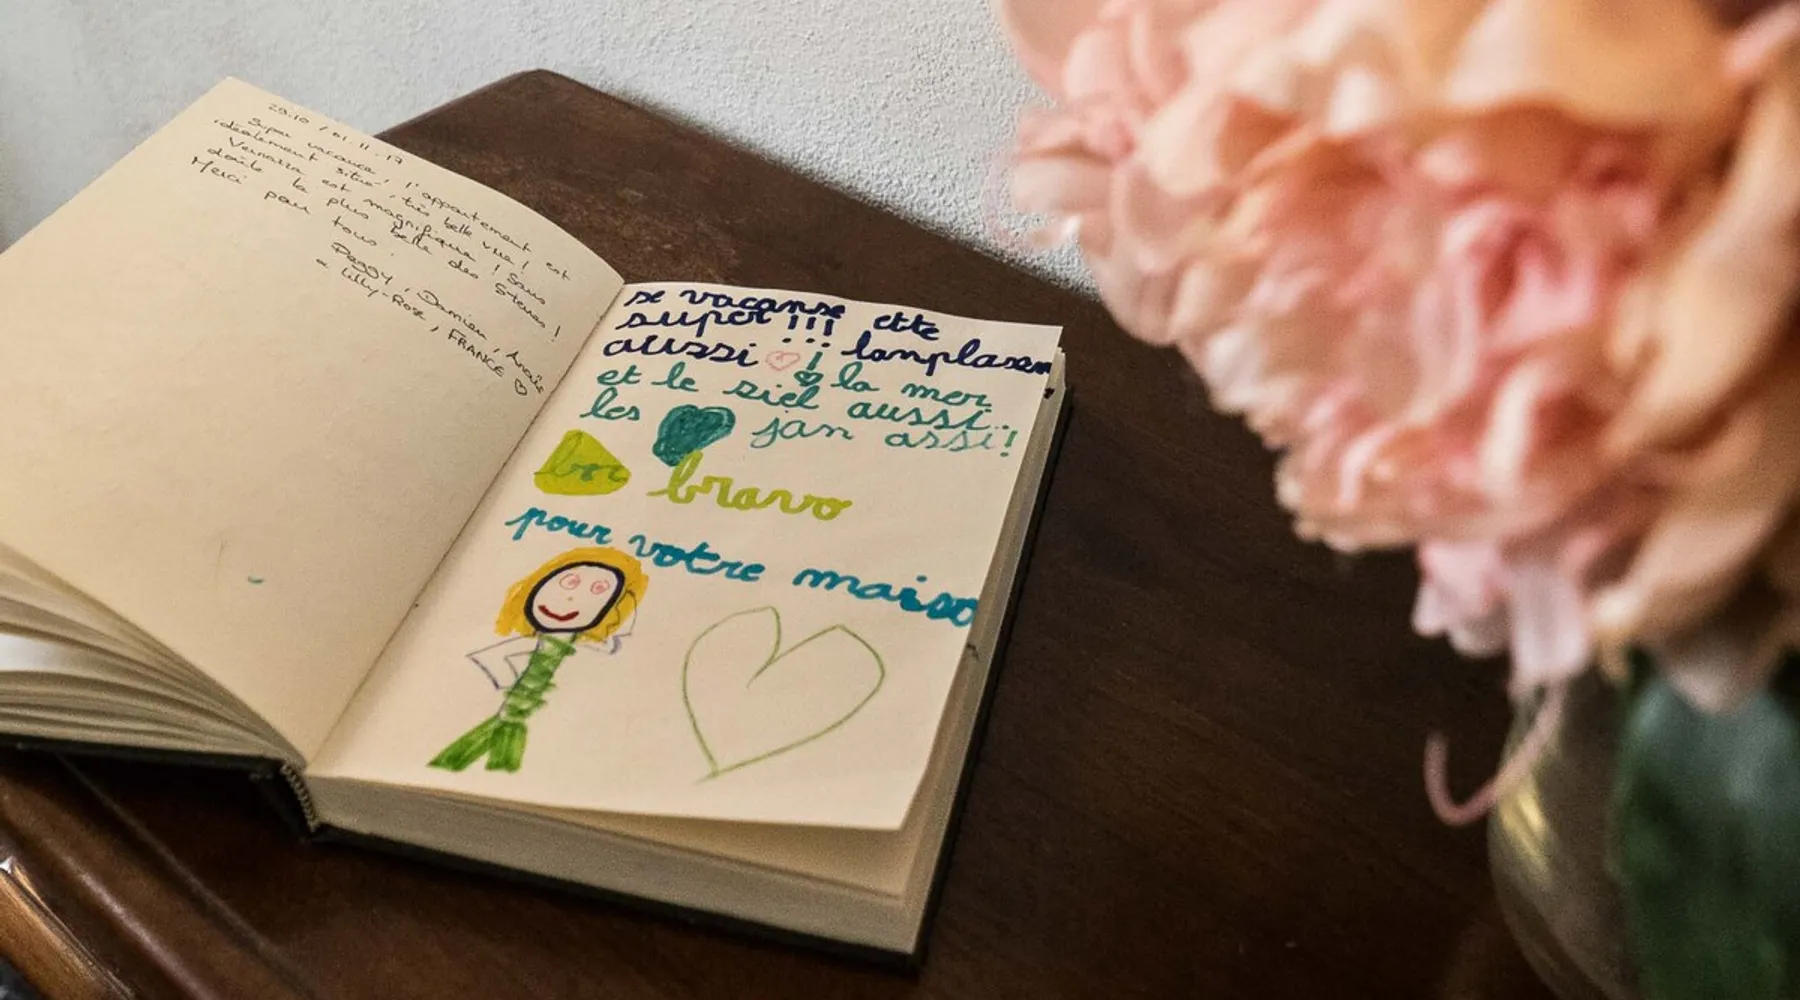 29.10 / 01.11.17
Super vacance, l'appartement est
idéalement situé, très belle vue !
Vernazza est magnifique ! Sans
doute la plus belle des 5 terres !
Merci pour tous.
Peggy, Damien, Anaïs
& Lilly-Roz, FRANCE ♡
se vacanse ette
super !!! lanplasem
aussi ♡ ! la mer
et le siel aussi..
les jan assi!
bravo
pour votre maiso